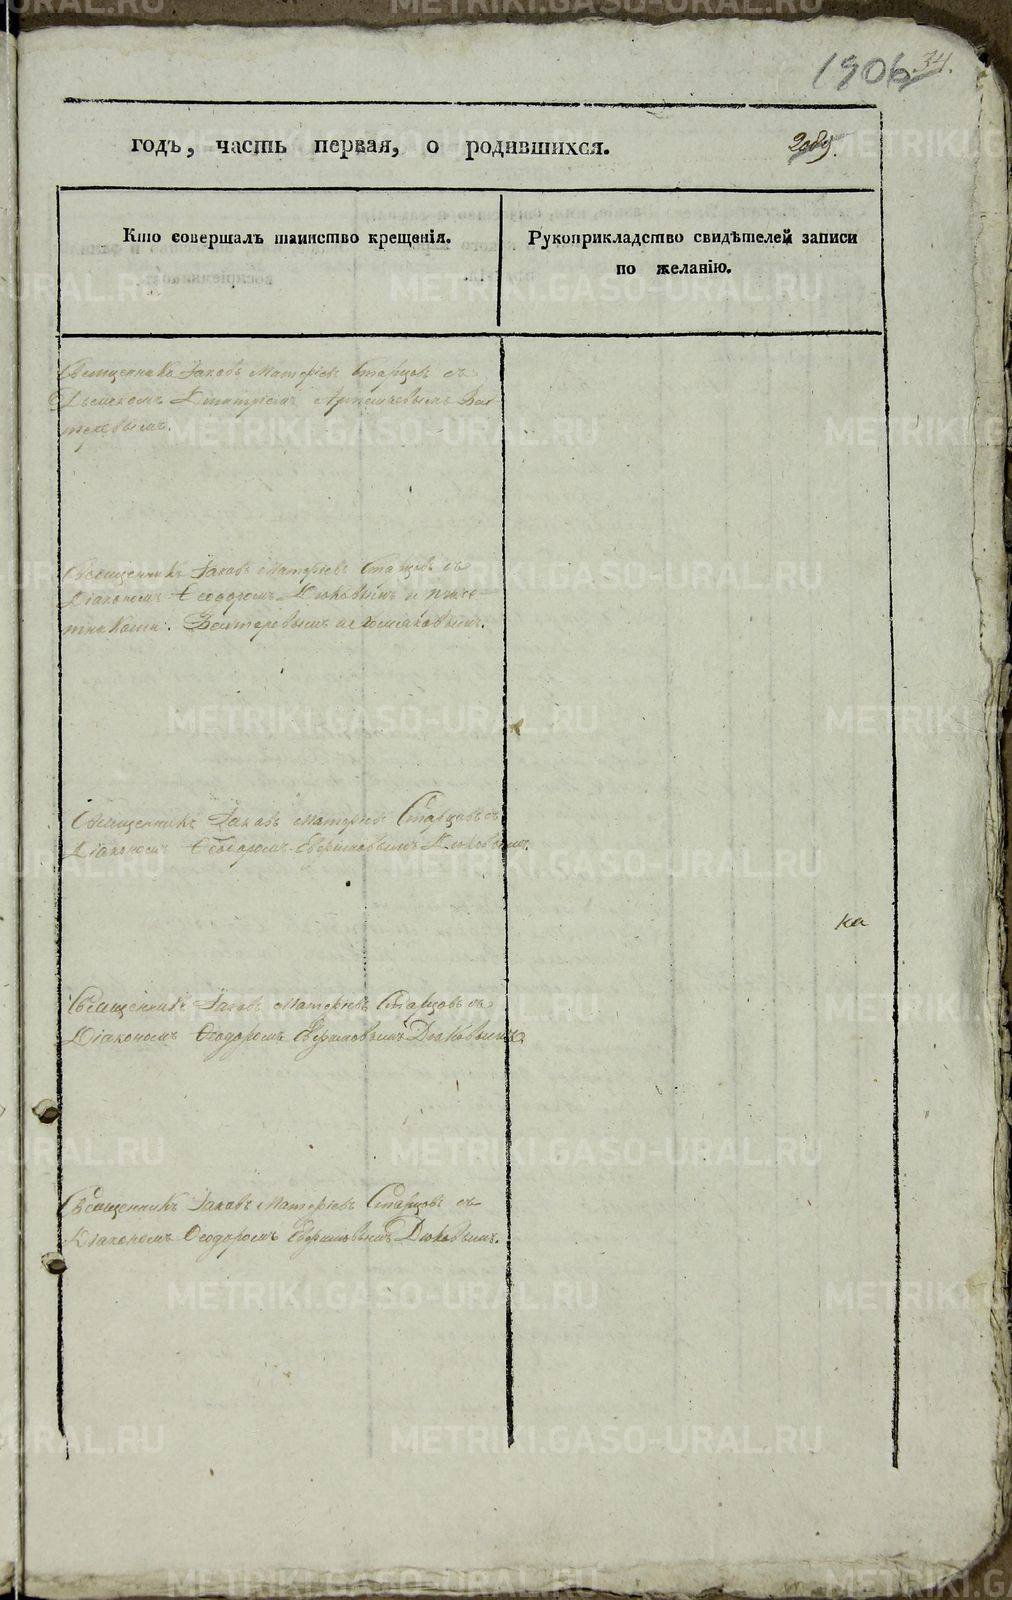 1906 34.
годъ, часть первая, о родившихся.
Кто совершалъ таинство крещенія.
Рукоприкладство свидѣтелей записи
по желанію.
Священникъ Іаковъ Матѳіевъ Старцовъ съ
Дьячкомъ Димитріемъ
Священникъ Іаковъ Матѳіевъ Старцовъ съ
Діакономъ Ѳеодоромъ Дюковымъ и
Священникъ Іаковъ Матѳіевъ Старцовъ съ
Діакономъ Ѳеодоромъ Дюковымъ.
ка
Священникъ Іаковъ Матѳіевъ Старцовъ съ
Діакономъ Ѳеодоромъ Дюковымъ
Священникъ Іаковъ Матѳіевъ Старцовъ съ
Діакономъ Ѳеодоромъ Дюковымъ.
METRIKI.GASO-URAL.RU